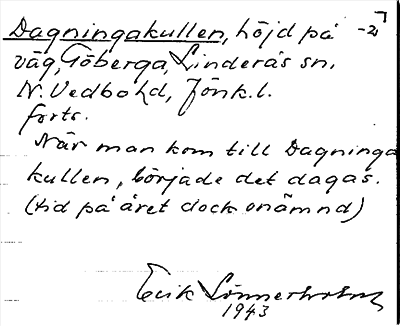 Dagningakullen, höjd på -2
väg, Göberga, Linderås sn,
N. Vedbo hd, Jönk.l.
forts.
När man kom till Dagninga
kullen, började det dagas.
(tid på året dock onämnd)
Erik Lönnerholm
1943